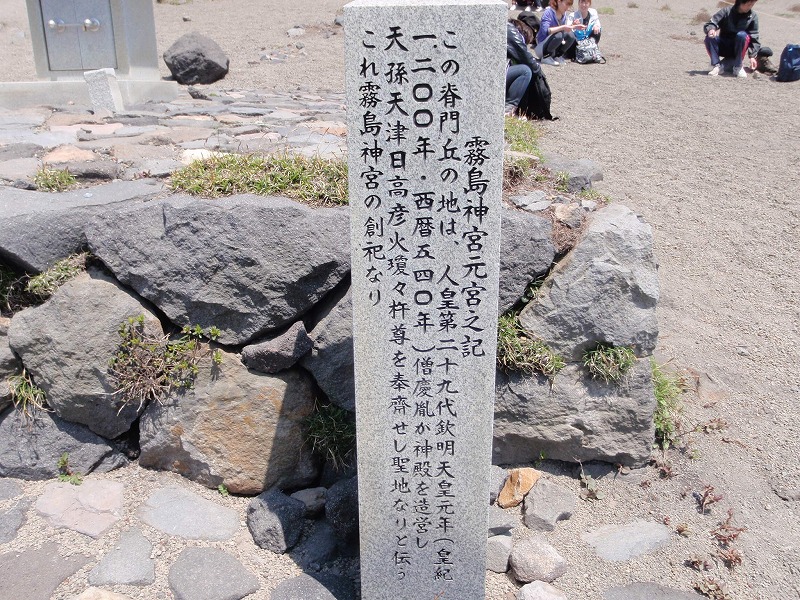 霧島神宮元宮之記
この脊門丘の地は、人皇第二十九代欽明天皇元年(皇紀
一、二〇〇年・西暦五四〇年)僧慶胤か神殿を造営し
天孫天津日高彦火瓊々杵尊を奉齋せし聖地なりと伝う
これ霧島神宮の創祀なり